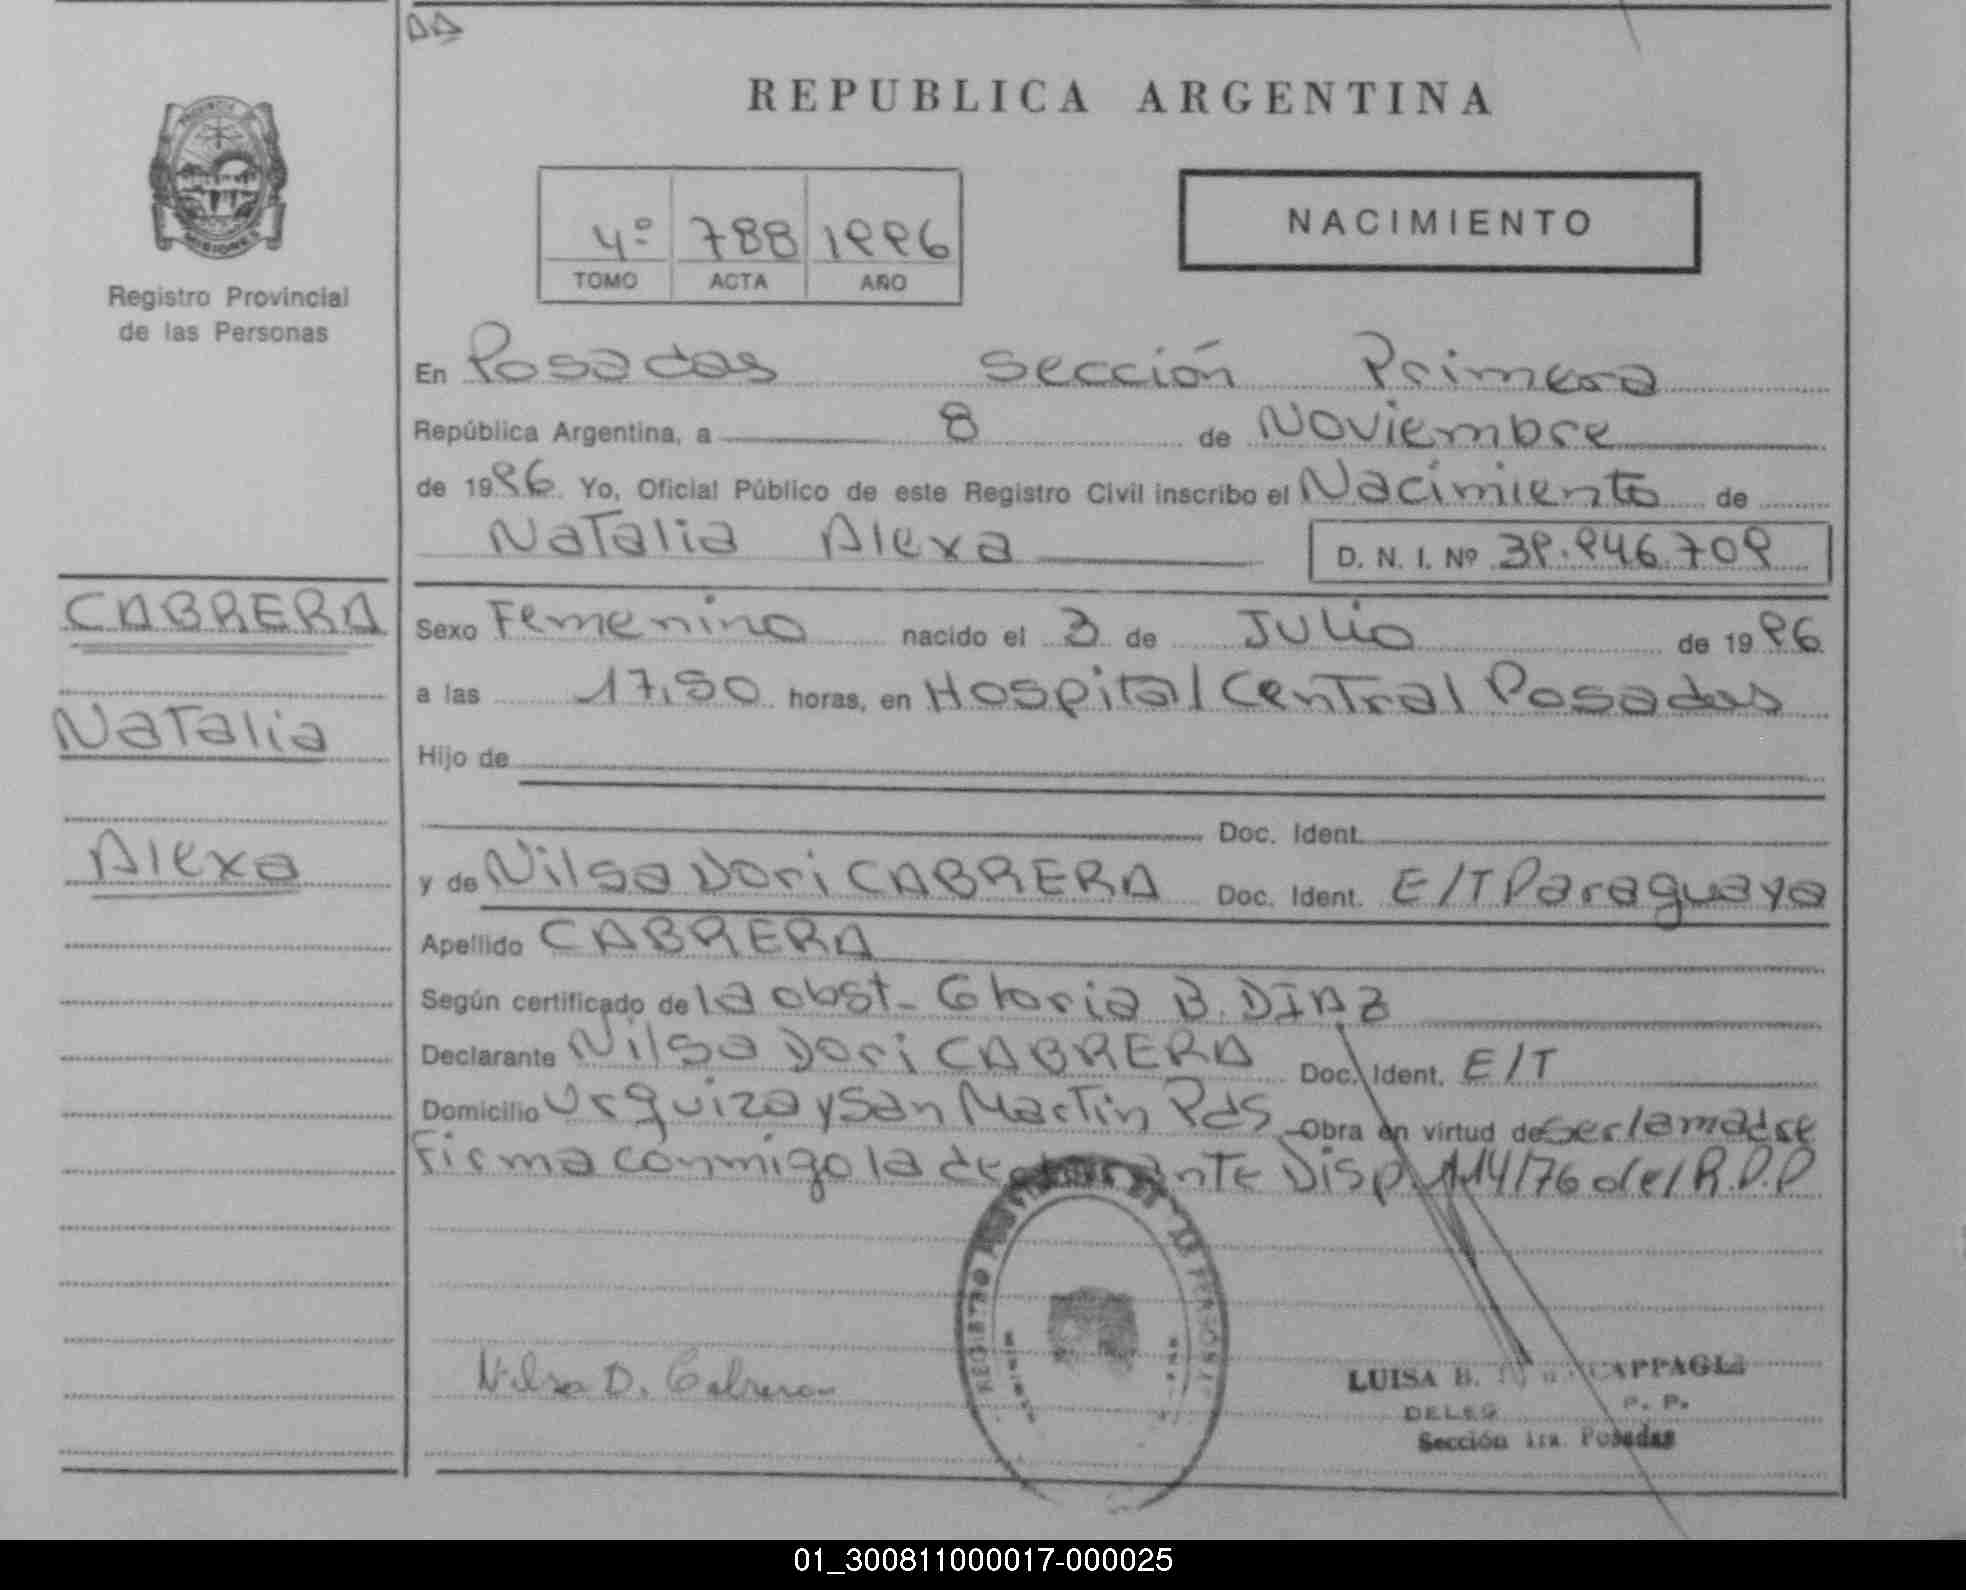 REPUBLICA ARGENTINA
PROVINCIA
MISIONES
Registro Provincial
de las Personas
4º 788 1996
TOMO ACTA AÑO
NACIMIENTO
En Posadas Sección Primera
República Argentina, a 8 de Noviembre
de 1996. Yo, Oficial Público de este Registro Civil inscribo el Nacimiento de
Natalia Alexa D. N. I. Nº 39.946.709
CABRERA
Natalia
Alexa
Sexo Femenino nacido el 3 de Julio de 1996
a las 17,50 horas, en Hospital Central Posadas
Hijo de
Doc. Ident.
y de Nilsa Dori CABRERA Doc. Ident. E/T Paraguaya
Apellido CABRERA
Según certificado de la obst. Gloria B. DIAZ
Declarante Nilsa Dori CABRERA Doc. Ident. E/T
Domicilio Urquiza y San Martin Pdas Obra en virtud de ser la madre
Firma conmigo la declarante Disp. 114/76 del R.P.P
REGISTRO
Nilsa D. Cabrera
LUISA B.
DELEG P. P.
Sección 1ra. Posadas
01_300811000017-000025